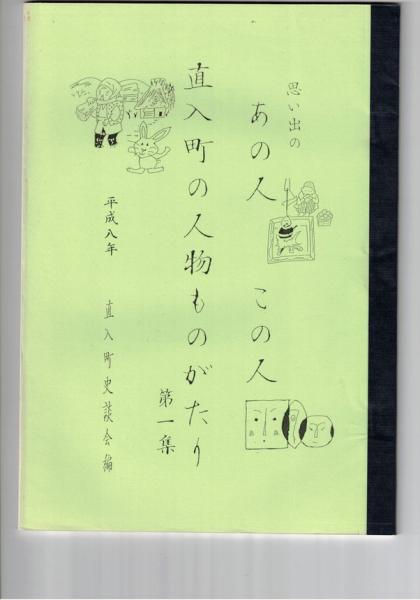 思い出の
あの人 この人
直入町の人物ものがたり
第一集
平成八年
直入町史談会編